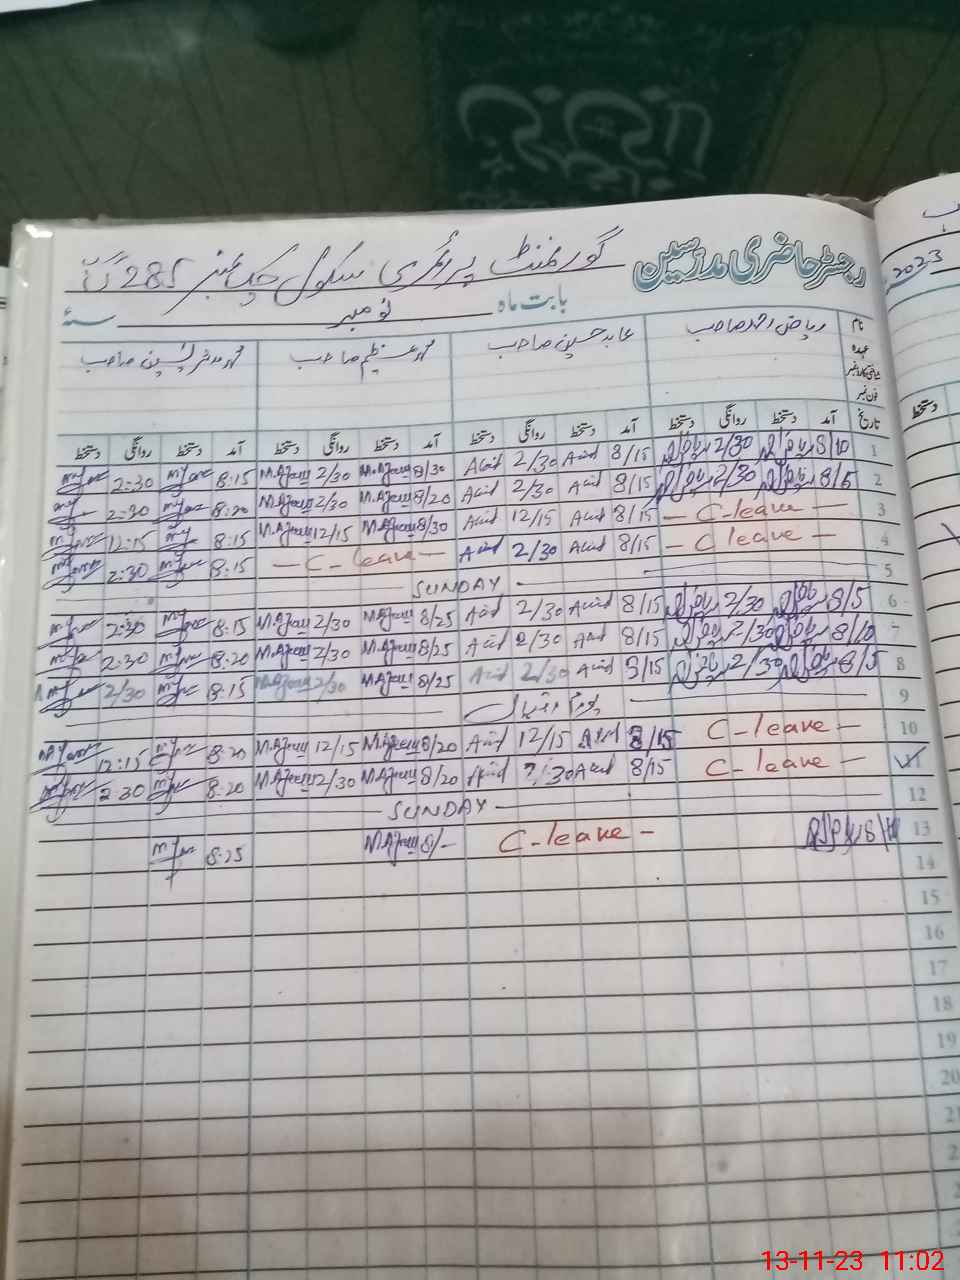 رجسٹر حاضری مدرسین گورنمنٹ پرائمری سکول چک نمبر 285 گ ب
2023
بابت ماہ نومبر سنہ
نام ریاض احمد صاحب عابد حسین صاحب محمد عظیم صاحب محمد مدثر صاحب
عہدہ
شناختی کارڈ نمبر
فون نمبر
تاریخ آمد دستخط روانگی دستخط آمد دستخط روانگی دستخط آمد دستخط روانگی دستخط آمد دستخط روانگی دستخط
دستخط
1 8/10 2/30 8/15 Abid 2/30 Abid 8/30 M.Azeem 2/30 M.Azeem 8:15 2:30
2 8/5 2/30 8/15 Abid 2/30 Abid 8/20 M.Azeem 2/30 M.Azeem 8:20 2:30
3 – C-leave – 8/15 Abid 12/15 Abid 8/30 M.Azeem 12/15 M.Azeem 8:15 12:15
4 – C leave – 8/15 Abid 2/30 Abid – C-leave – 8:15 2:30
5 SUNDAY -
6 8/5 2/30 8/15 Abid 2/30 Abid 8/25 M.Azeem 2/30 M.Azeem 8:15 2:30
7 8/10 2/30 8/15 Abid 2/30 Abid 8/25 M.Azeem 2/30 M.Azeem 8:20 2:30
8 8/5 2/30 Abid 2/30 Abid 8/25 M.Azeem 2/30 M.Azeem 8:15 2/30
9 یوم اقبال
10 C-leave – 8/15 Abid 12/15 Abid 8/20 M.Azeem 12/15 M.Azeem 8:20 12:15
11 C-leave – 8/15 Abid 2/30 Abid 8/20 M.Azeem 2/30 M.Azeem 8:20 2:30
12 SUNDAY -
13 C-leave - 8/- M.Azeem 8:25
14
15
16
17
18
19
20
21
13-11-23 11:02